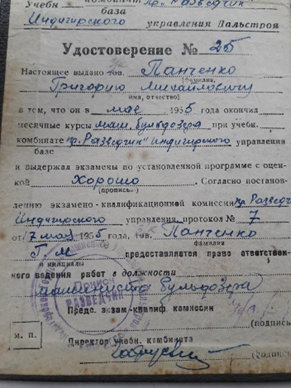 Учебн комбинати пр."Разведчик
база
Индигирского управления Дальстроя
Удостоверение № 25
Настоящее выдано тов. Панченко
(фамилия,
Григорию Михайловичу
имя, отчество)
в том, что он в мае 1955 года окончил
месячные курсы маш. бульдозера при учебн.
комбинате пр. Разведчик" Индигирского управления
базе
и выдержал экзамены по установленной программе с оцен-
кой Хорошо. Согласно постанов-
(прописью.)
лению экзамено-квалификационной комиссии пр Разведч
Индигирского управления, протокол № 7
от 7 мая 1955 года, тов. Панченко
фамилия
Г. М. предоставляется право ответствен-
и инициалы
ного ведения работ в должности
машиниста бульдозера
РАЗВЕДЧИК
Предс. экзам.-квалиф. комиссии
(подпись
М. П. Директор учебн. комбината
(подпись